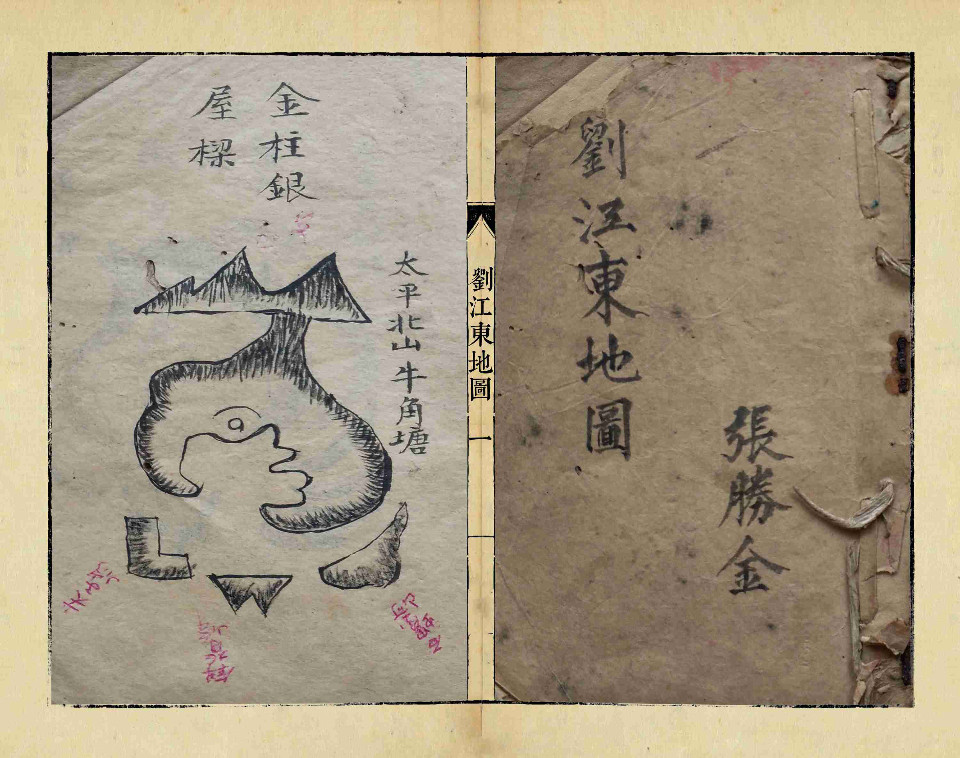 劉江東地圖
張勝金
劉江東地圖
一
金柱銀
屋樑
太平北山牛角塘